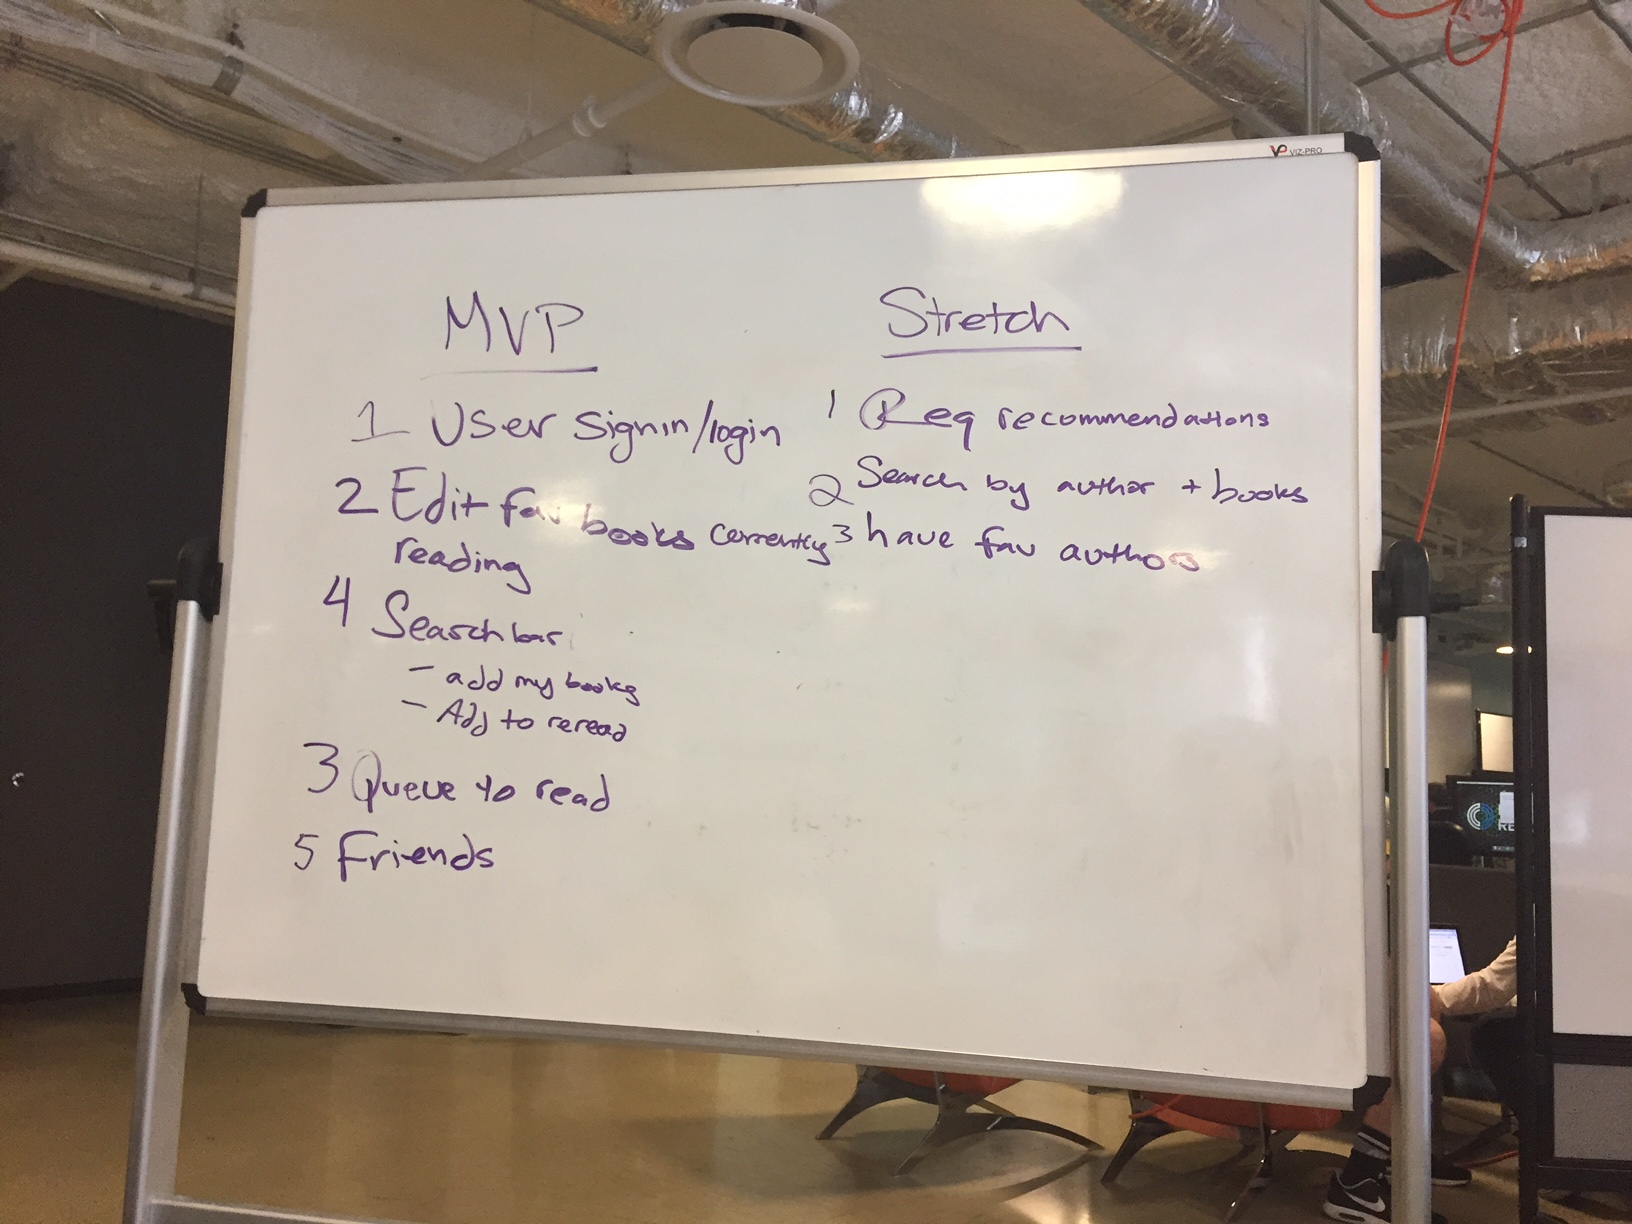 VIZ-PRO
MVP
1 User signin/login
2 Edit fav books currently
reading
4 Search bar
- add my books
- Add to reread
3 Queue to read
5 Friends
Stretch
1 Req recommendations
2 Search by author + books
3 have fav authors